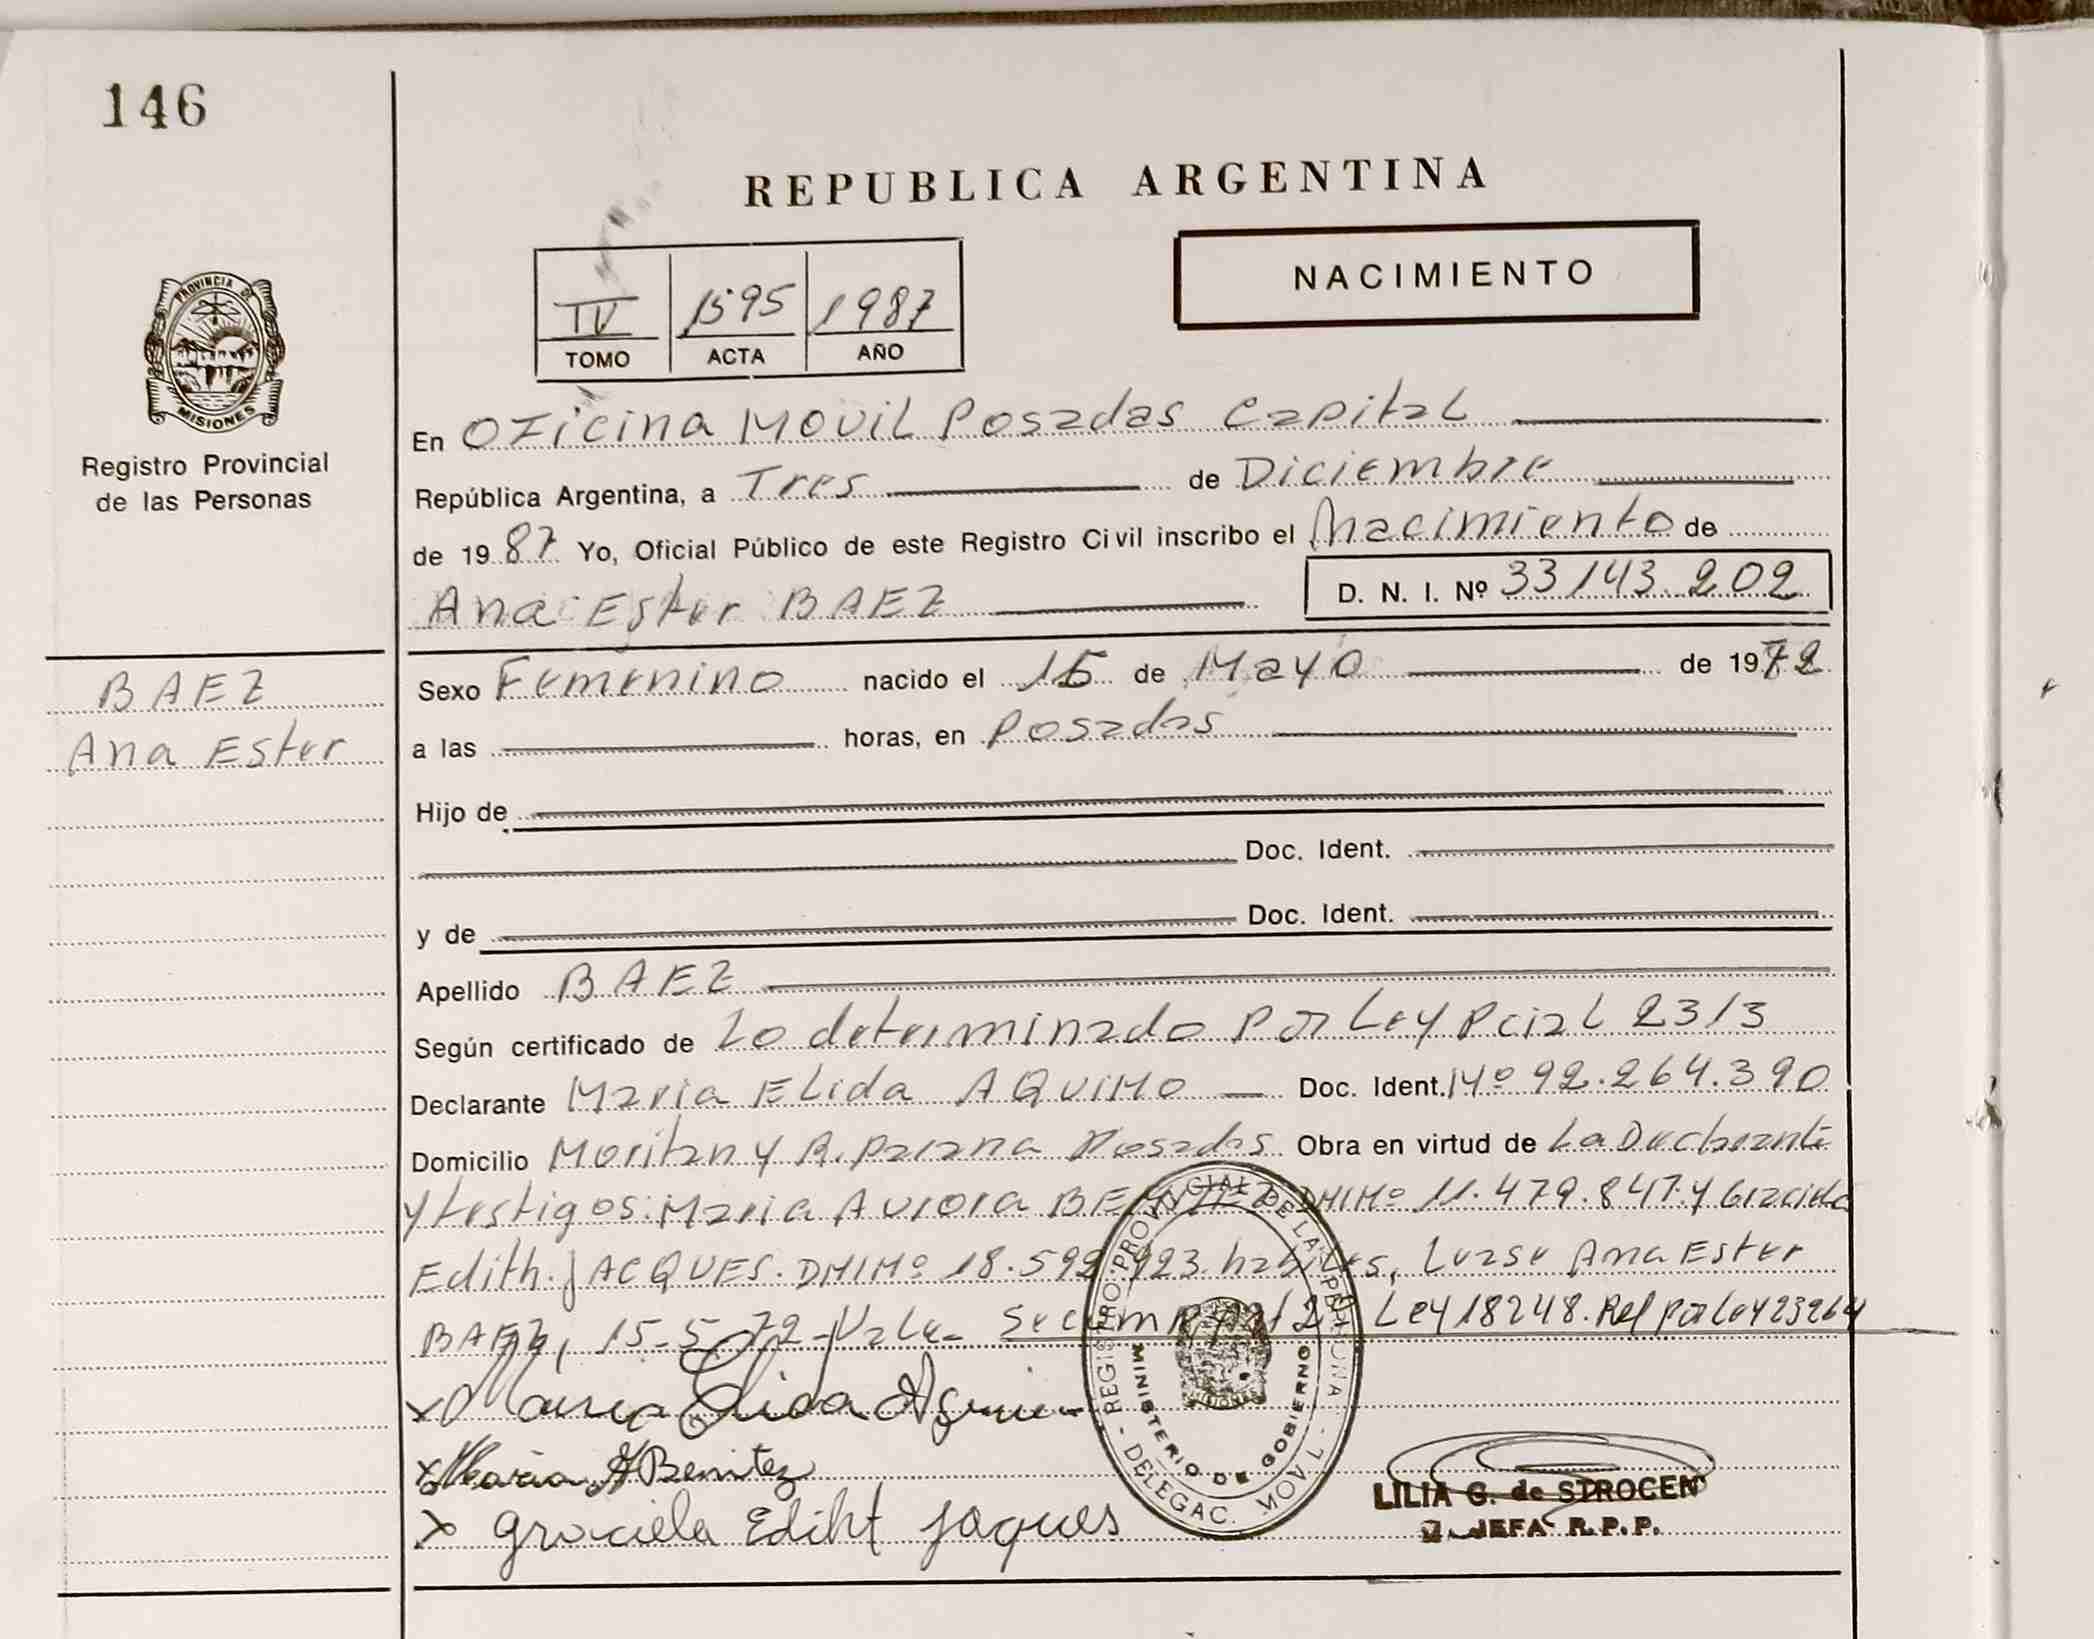 146
REPUBLICA ARGENTINA
NACIMIENTO
IV 1595 1987
TOMO ACTA AÑO
PROVINCIA DE
MISIONES
Registro Provincial
de las Personas
En Oficina Movil Posadas Capital
República Argentina, a Tres de Diciembre
de 1987 Yo, Oficial Público de este Registro Civil inscribo el Nacimiento de
Ana Ester BAEZ D. N. I. Nº 33143.202
BAEZ
Ana Ester
Sexo Femenino nacido el 15 de Mayo de 1972
a las horas, en Posadas
Hijo de
Doc. Ident.
y de Doc. Ident.
Apellido BAEZ
Según certificado de Lo determinado por Ley Pcial 2313
Declarante Maria Elida AQUINO Doc. Ident. Nº 92.264.390
Domicilio Moritan y R. Parana Posadas Obra en virtud de La Declarante
y testigos: Maria Aurora BENITEZ DNINº 11.479.847. y Graciela
Edith JACQUES. DNINº 18.592.923. habiles, Lease Ana Ester
BAEZ, 15-5-72-Vale- Ley 18248. Ref por Ley 23264
x Maria Elida Aquino
x Maria A Benitez
x Graciela Ediht Jaques
REGISTRO PROVINCIAL DE LAS PERSONAS - DELEGAC. MOVIL -
MINISTERIO DE GOBIERNO
LILIA G. de STROCEN
JEFA R.P.P.